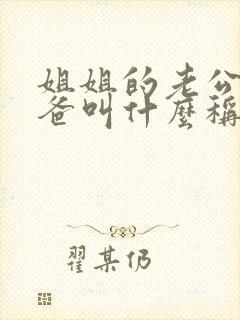 姐姐的老公
爸叫什麼稱
翟某仍